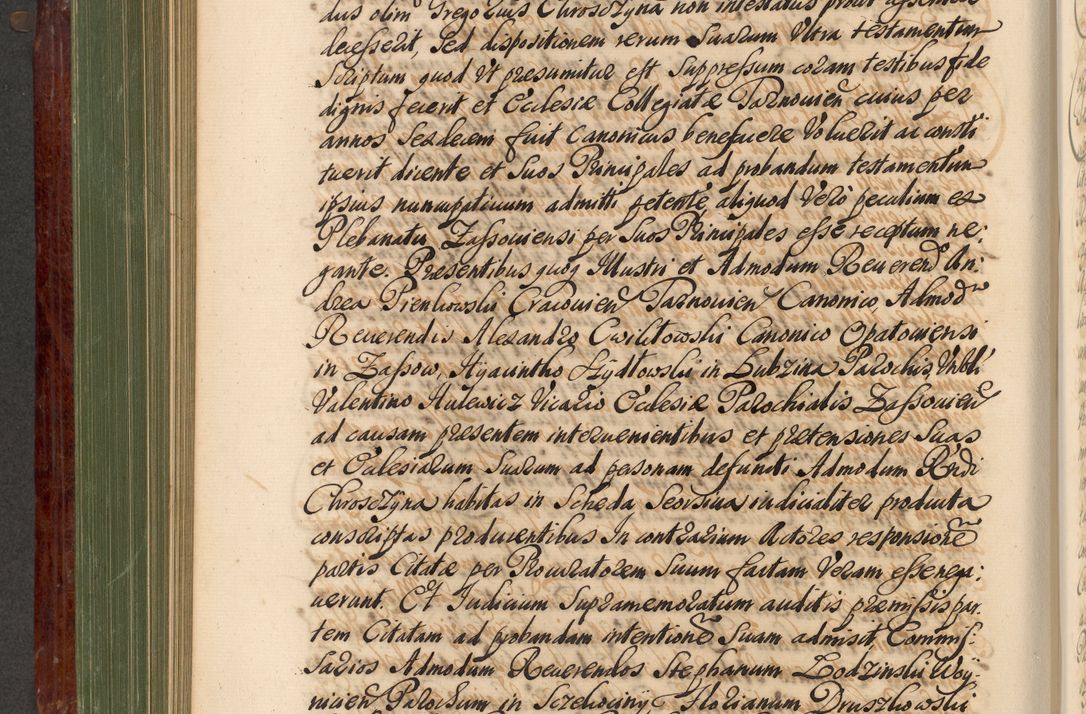 dus olim Gregorius Chroszczyna non intestatus prout asseritur
decesserit, sed dispositionem rerum Suarum Ultra testamentum
Scriptum quod Vt presumitur est Suppressum coram testibus fide
dignis fecerit et Ecclesiæ Collegiatæ Tarnovien cuius per
annos Sexdecem fuit Canonicus benefacere Voluerit ac consti
tuerit dicente et Suos Principales ad probandum testamentum
ipsius nuncupativum admitti petente, aliquod Verò peculium ex
Plebanatu Zassoviensi per Suos Principales esse receptum ne:
gante. Præsentibus quoq Illustri et Admodum Reverend An:
drea Pienkowski Cracovien Tarnovien Canonico, Admod
Reverendis Alexandro Cwilitowski Canonico Opatoviensi
in Zassow, Hyacintho Szydłowski in Lubzina Parochis, Vnbli
Valentino Hulewicz Vicario Ecclesiæ Parochialis Zassovien
ad causam præsentem intervenientibus et prætensiones Suas
et Ecclesiarum Suarum ad personam defuncti Admodum Rndi
Chroszczyna habitas in Scheda Seorsiva iudicialiter producta
conscriptas producentibus In contrarium Actores responsione
partis Citatæ per Procuratorem Suum factam Veram esse nega:
verunt. Et Iudicium Supramemoratum auditis præmissis par
tem Citatam ad probandam intentione Suam admisit Commis:
sarios Admodum Reverendos Stephanum Lodzinski Woy:
nicien Parochum in Szrekociny Florianum Druszkowski